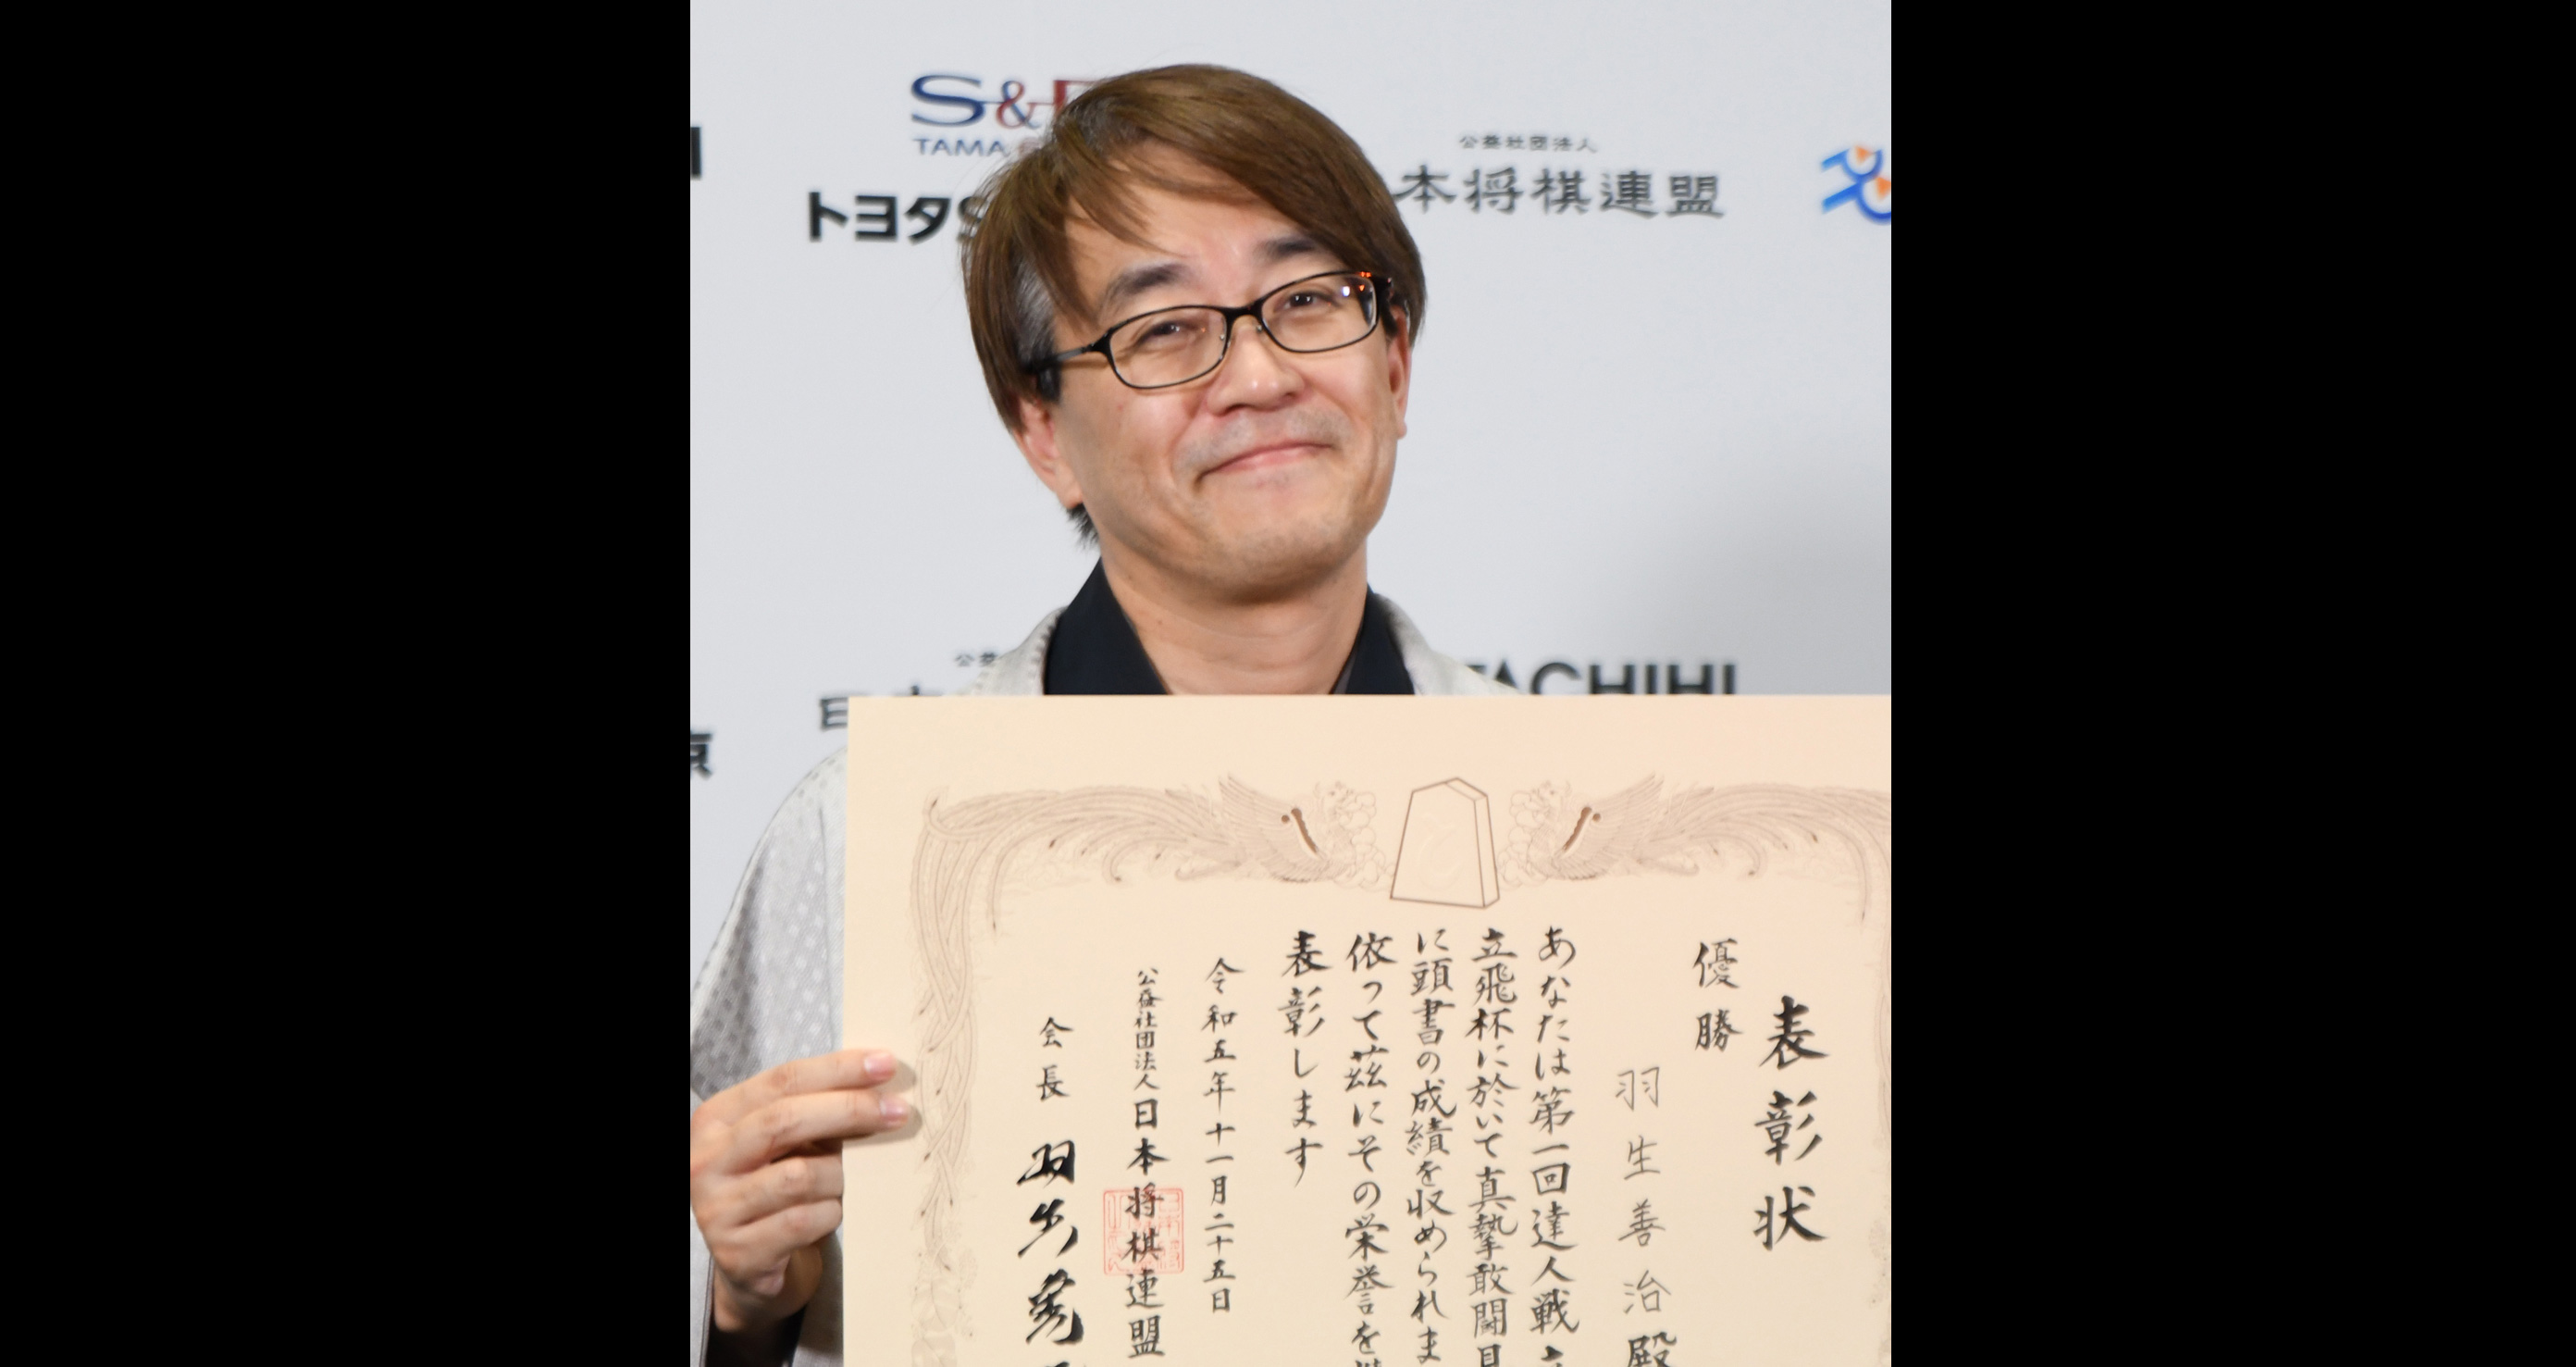 S&
TAMA
トヨタS
公益社団法人
本将棋連盟
公益
TACHIHI
表彰状
優勝
羽生善治殿
あなたは第一回達人戦立
立飛杯に於いて真摯敢闘見
に頭書の成績を収められま
依って茲にその栄誉を
表彰します
令和五年十一月二十五日
公益社団法人日本将棋連盟
会長 羽生善